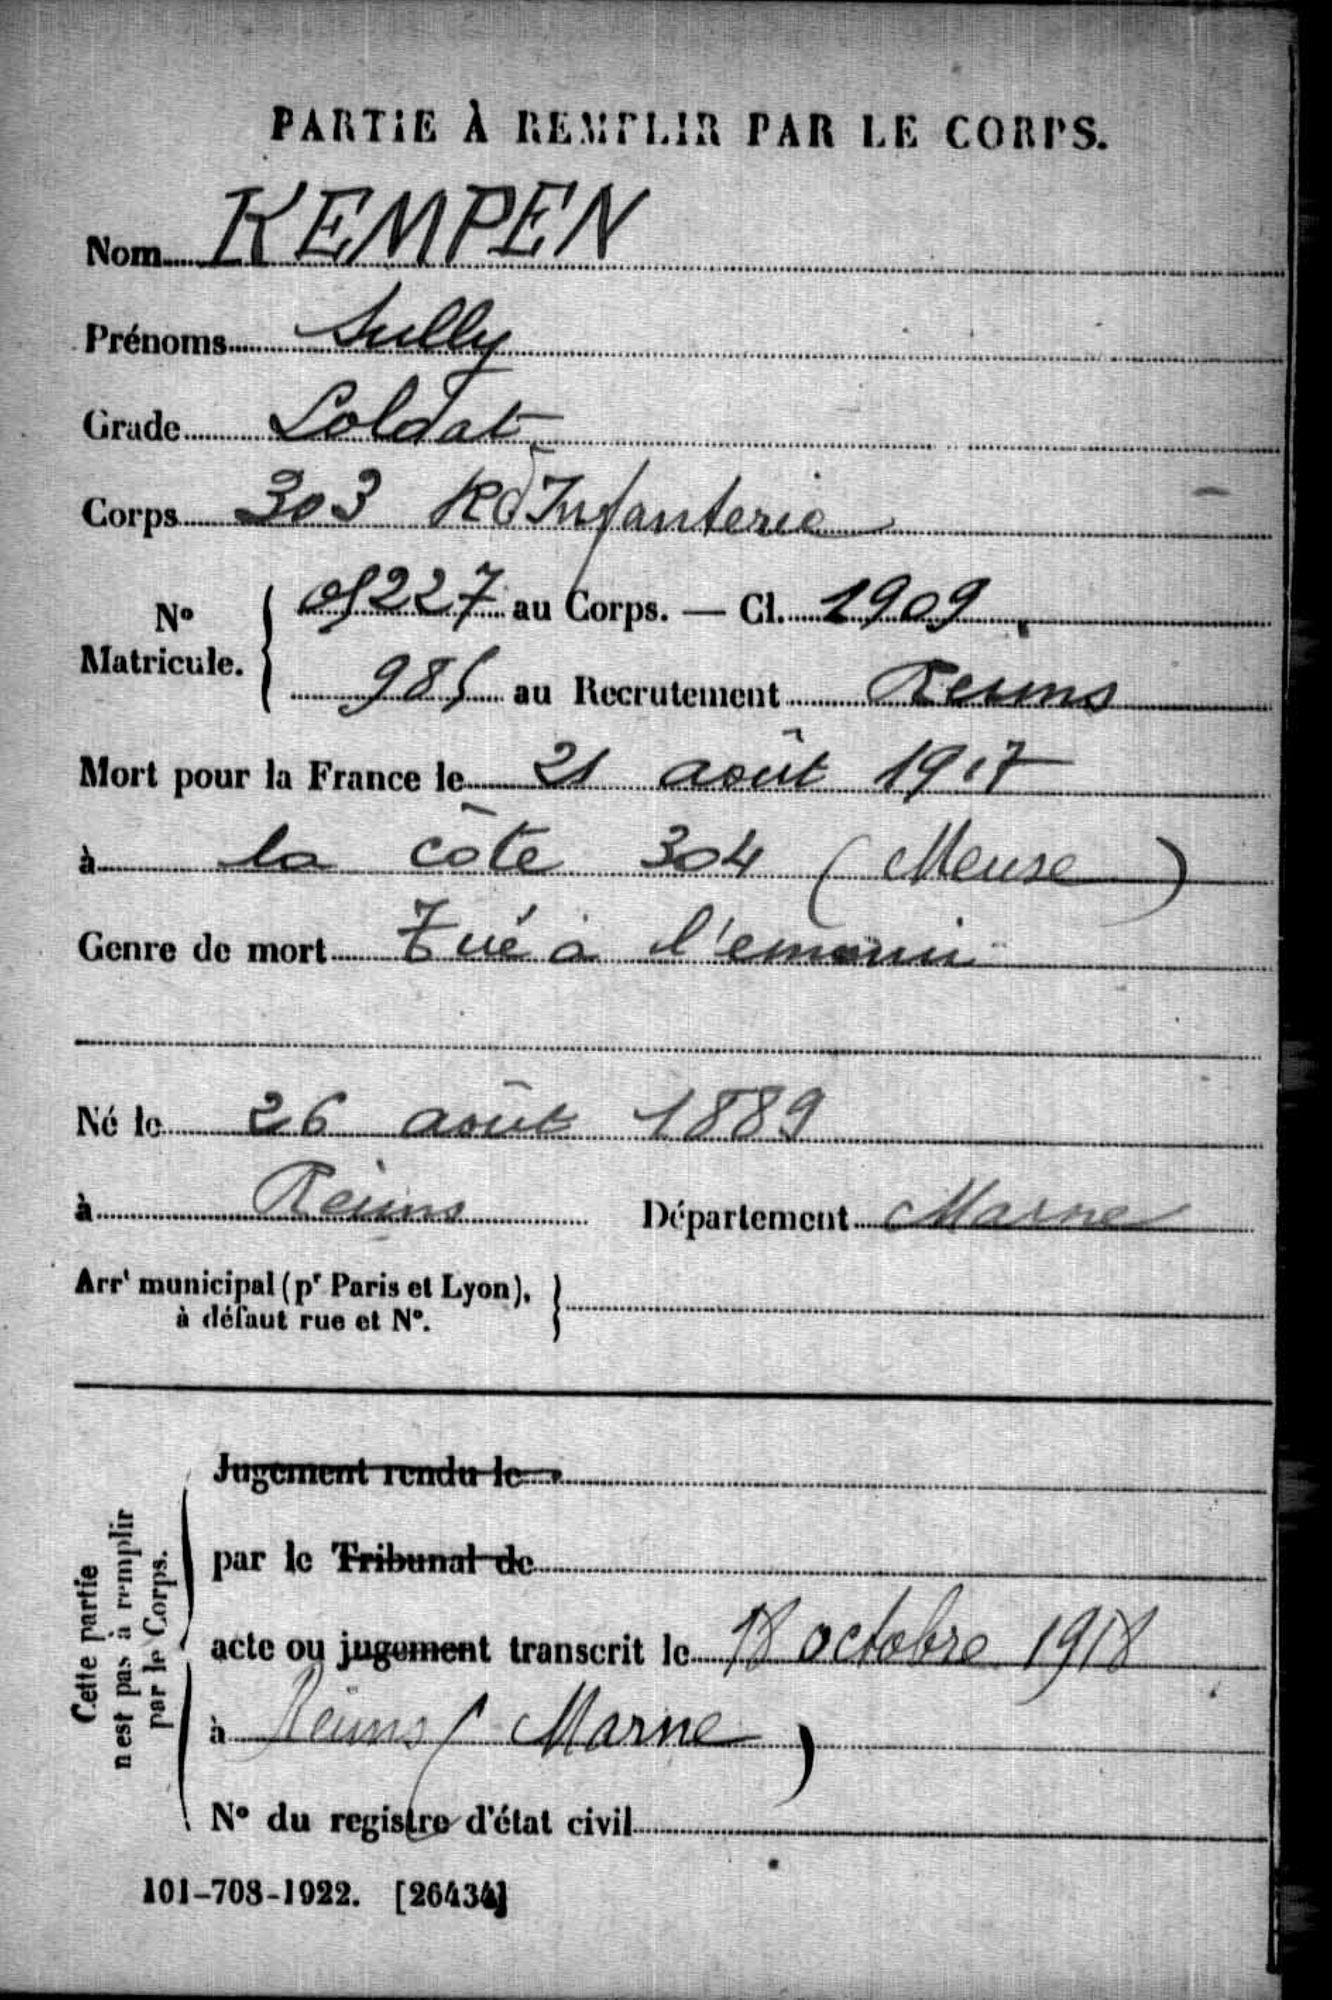 PARTIE À REMPLIR PAR LE CORPS.
Nom KEMPEN
Prénoms Sully
Grade Soldat
Corps 303 R d'Infanterie
No Matricule. { 05227 au Corps. — Cl. 1909
985 au Recrutement Reims
Mort pour la France le 21 août 1917
à la côte 304 (Meuse)
Genre de mort Tué à l'ennemi
Né le 26 août 1889
à Reims Département Marne
Arrt municipal (pr Paris et Lyon), à défaut rue et No. }
Cette partie n'est pas à remplir par le Corps.
Jugement rendu le
par le Tribunal de
acte ou jugement transcrit le 18 octobre 1918
à Reims (Marne)
No du registre d'état civil
101-708-1922. [26434]